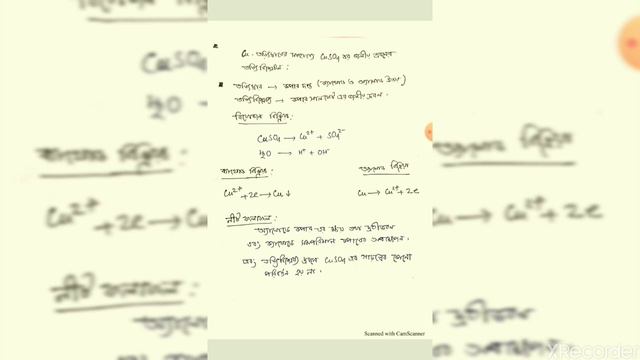 Cu তড়িৎদ্বারের সাহায্যে CuSO4 এর জলীয় দ্রবণের
তড়িৎবিশ্লেষণ :
তড়িৎদ্বার → কপার দন্ড (ক্যাথোড ও অ্যানোড উভয়)
তড়িৎবিশ্লেষ্য → কপার সালফেট এর জলীয় দ্রবণ.
বিয়োজন বিক্রিয়া :
CuSO4 → Cu2+ + SO4 2-
H2O → H+ + OH-
ক্যাথোড বিক্রিয়া :
Cu2+ + 2e → Cu ↓
Cu → Cu2+ + 2e
নীট ফলাফল :
অ্যানোডে কপার এর ক্ষয়
এবং ক্যাথোডে সমপরিমাণ কপারের
এবং তড়িৎবিশ্লেষ্য দ্রবণে CuSO4 এর ঘনত্বের কোনো
পরিবর্তন হয় না.
Scanned with CamScanner
XRecorder